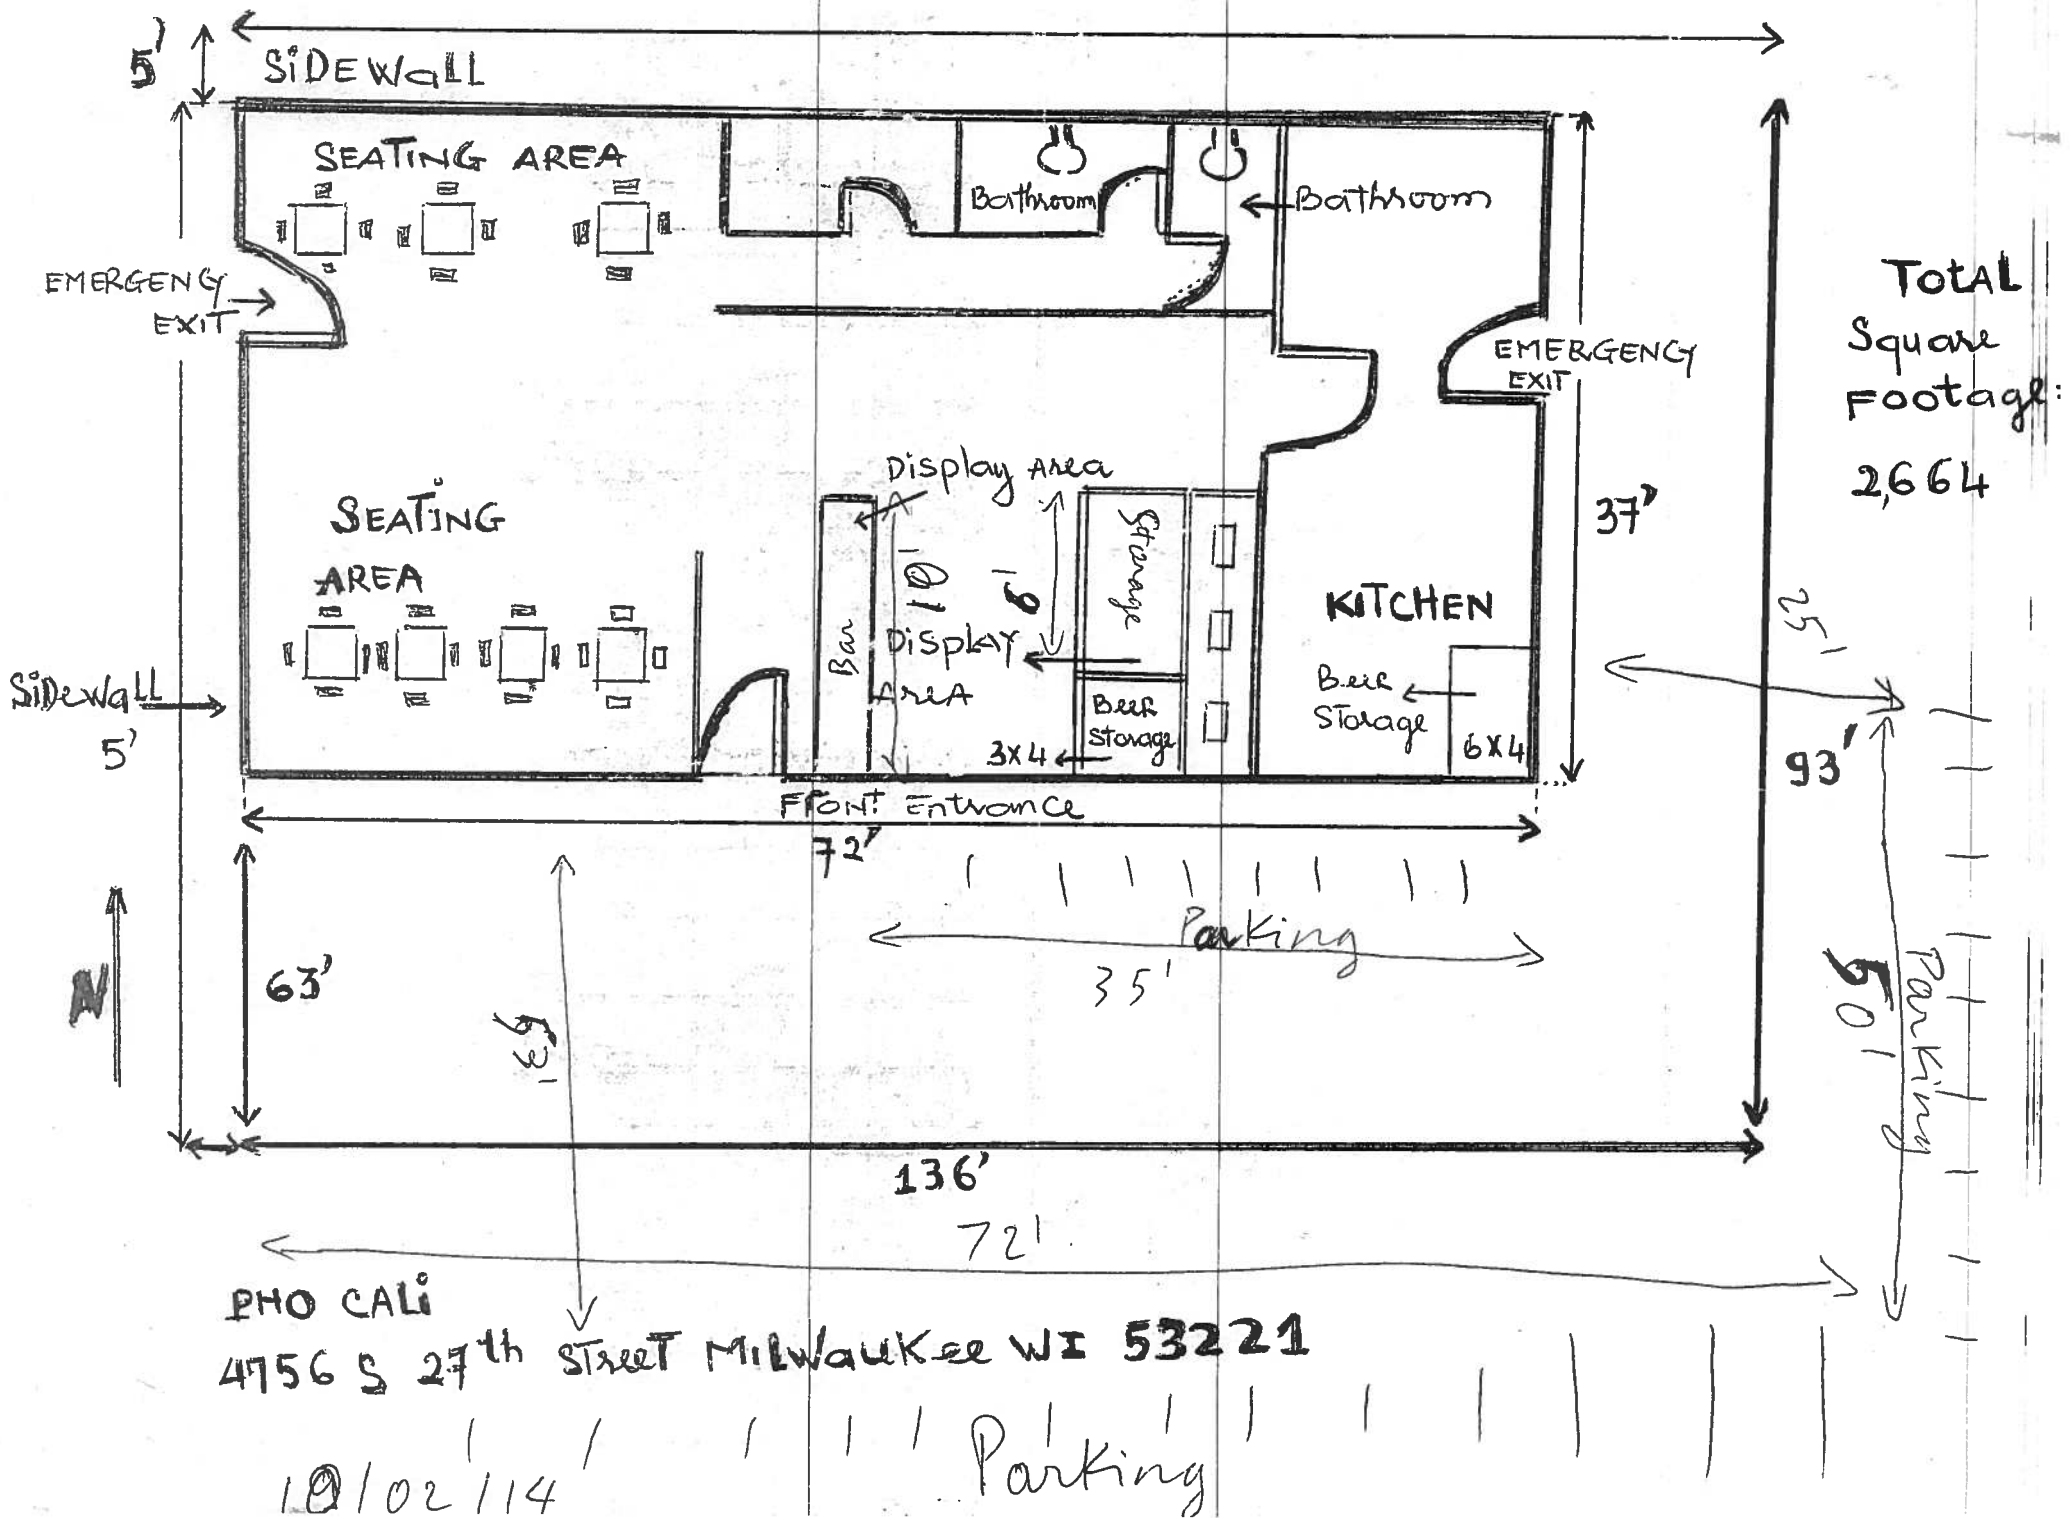 5'
SiDEWaLL
SEATING AREA
Bathroom
Bathroom
EMERGENCY
EXIT
EMERGENCY
EXIT
TOtAL
Square
FOOtage:
2,664
Display Area
SEATiNG
AREA
10'
6'
Storage
37'
KITCHEN
25'
Bar
Display
AreA
Beer
Storage
3x4
Beer
Storage
6x4
SiDewaLL
5'
93'
Front Entrance
72'
Parking
35'
N
63'
63'
50'
Parking
136'
72'
PHO CALi
4756 S 27th Street MiLWauKee WI 53221
Parking
10/02/14